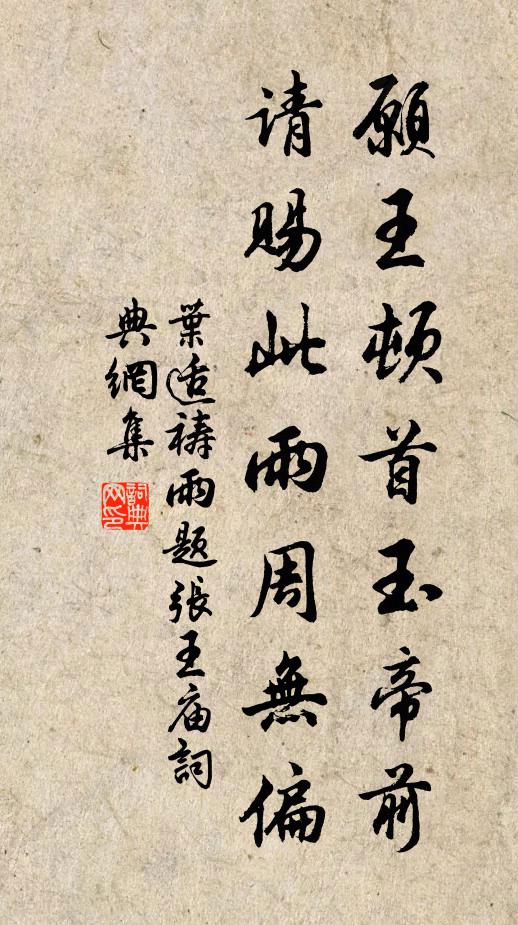 願王頓首玉帝前
请賜此雨周無偏
葉适禱雨題張王庙詞
典網集
詞典网印